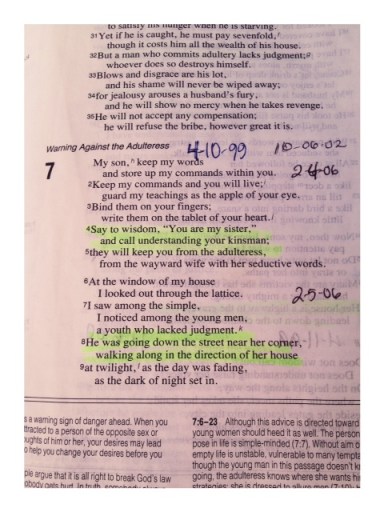 to satisfy his hunger when he is starving.
31 Yet if he is caught, he must pay sevenfold,
though it costs him all the wealth of his house.
32 But a man who commits adultery lacks judgment;
whoever does so destroys himself.
33 Blows and disgrace are his lot,
and his shame will never be wiped away;
34 for jealousy arouses a husband's fury,
and he will show no mercy when he takes revenge.
35 He will not accept any compensation;
he will refuse the bribe, however great it is.
Warning Against the Adulteress 4-10-99 10-06-02
7 My son, keep my words
and store up my commands within you. 2-4-06
2 Keep my commands and you will live;
guard my teachings as the apple of your eye.
3 Bind them on your fingers;
write them on the tablet of your heart.
4 Say to wisdom, "You are my sister,"
and call understanding your kinsman;
5 they will keep you from the adulteress,
from the wayward wife with her seductive words.
6 At the window of my house
I looked out through the lattice. 2-5-06
7 I saw among the simple,
I noticed among the young men,
a youth who lacked judgment. k
8 He was going down the street near her corner,
walking along in the direction of her house
9 at twilight, as the day was fading,
as the dark of night set in.
s a warning sign of danger ahead. When you
ttracted to a person of the opposite sex or
ughts of him or her, your desires may lead
o help you change your desires before you
ple argue that it is all right to break God's law
7:6–23 Although this advice is directed toward
young women should heed it as well. The person
pose in life is simple-minded (7:7). Without aim o
empty life is unstable, vulnerable to many tempta
though the young man in this passage doesn't k
going, the adulteress knows where she wants hi